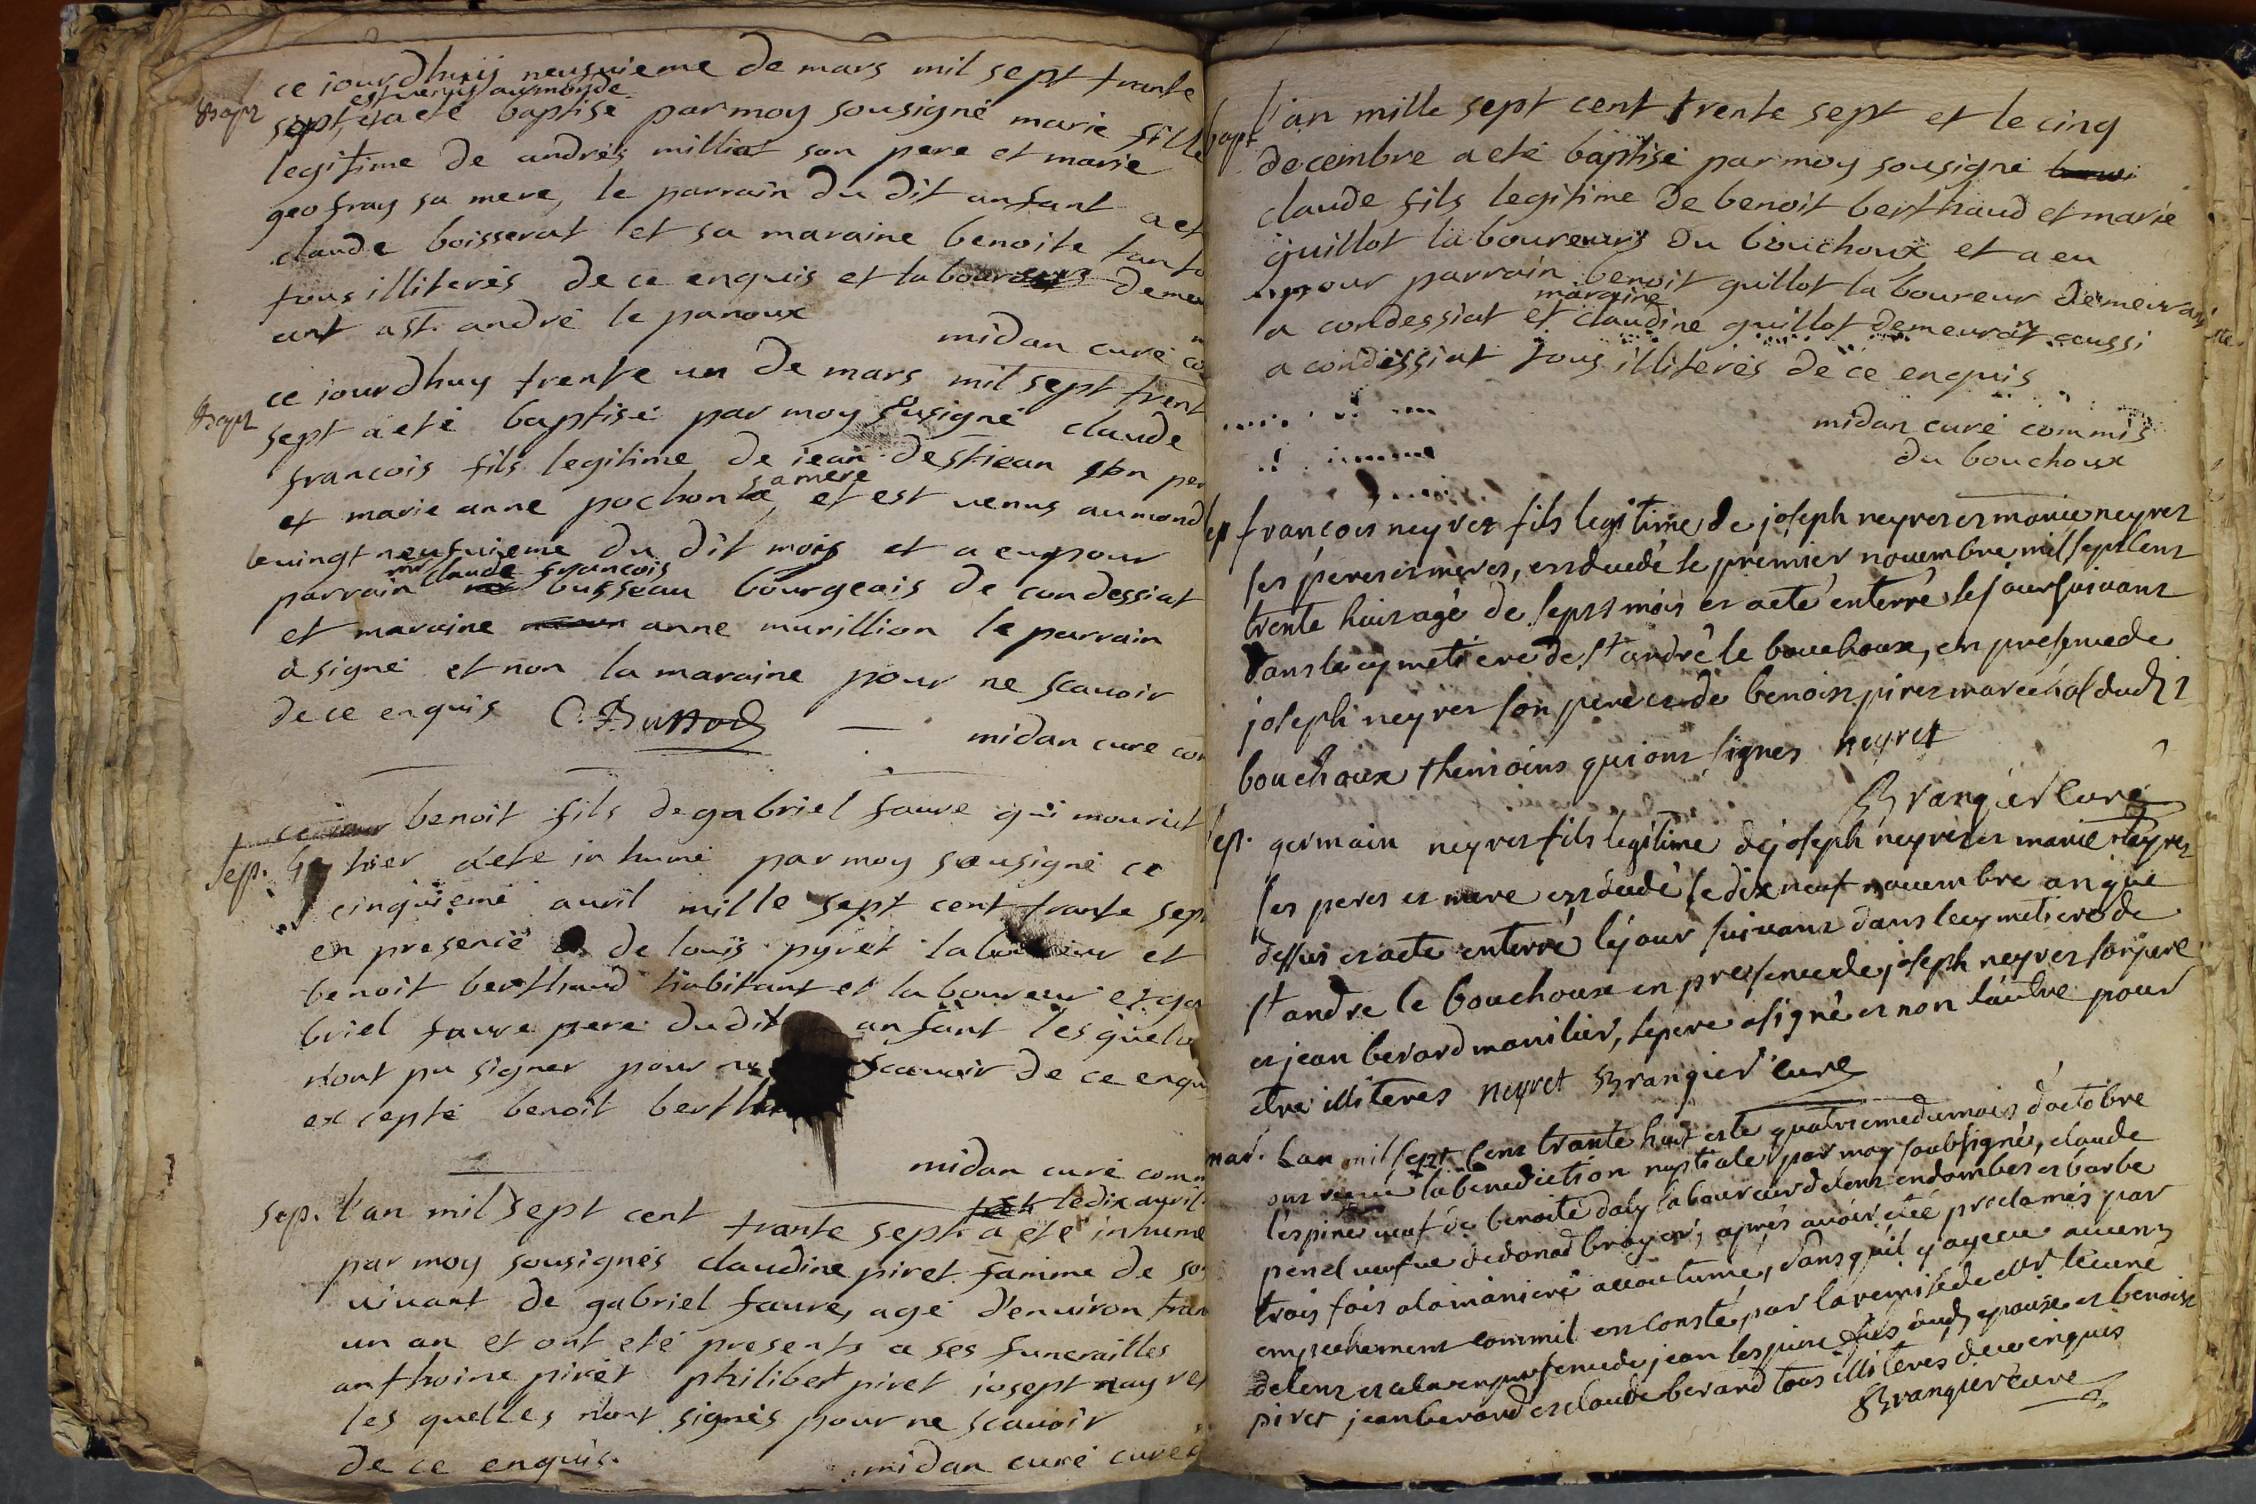 ce iourdhuij neusuieme de mars mil sept trante
est venus au monde
Bapt sept, et a eté baptisé par moy sousigné marie fille
legitime de andrés milliat son pere et marie
geofray sa mere, le parrain du dit anfant a et
claude boisserat et sa maraine benoite
tous illiterés de ce enquis et laboureurs deme
ant a st. andré le panoux
midan curé co
ce iourdhuy trente un de mars mil sept trent
Bapt sept a eté baptisé par moy susigné claude
francois fils legitime de iean destiean son per
sa mere
et marie anne pochon, et est venus au mond
le vingt neusuieme du dit mois et a eu pour
mr claude francois
parrain busseau bourgeois de condessiat
et maraine anne murillion le parrain
à signé et non la maraine pour ne scauoir
de ce enquis C. Bussod
midan cure com
benoit fils de gabriel faure qui mourut
Sep. hier a eté inhumé par moy sousigné ce
cinquieme auril mille sept cent trante sept
en presence de louis pyret laboureur et
benoit berthaud habitant et laboureur et ga
briel faure pere dudit anfant les quels
nont pu signer pour ne scauoir de ce enqu
excepté benoit berth
midan curé comm
le dix auril
Sep. l'an mil sept cent trante sept a eté inhumé
par moy sousignés claudine piret famme de son
viuant de gabriel faure, agé d'environ tran
un an et ont eté presents a ses funerailles
anthoine piret philibert piret iosept nayret
les quelles n'ont signés pour ne scauoir
de ce enquis.
midan curé curé
bapt l'an mille sept cent trente sept et le cinq
decembre a eté baptisé par moy sousigné
claude fils legitime de benoit berthaud et marie
guillot laboureurs du bouchoux et a eu
pour parrain benoit guillot laboureur demeurant
maraine
a condessiat et claudine guillot demeurant aussi
a condessiat tous illiterés de ce enquis
midan curé commis
du bouchoux
sep françois neyret fils legitime de joseph neyret et marie neyret
ses peres et mères, est decedé le premier nouembre mil sept cent
trente huit agé de sept mois et a eté enterré le jour suivant
dans le cymetiere de st andré le bouchoux, en presence de
joseph neyret son pere et de benoit piret maréchal dudit
bouchoux themoins qui ont signes neyret
Brangier curé
sep. germain neyret fils legitime de joseph neyret et marie neyret
ses peres et mere est decedé le dix neuf nouembre an que
dessus et a eté enterré le jour suivant dans le cymetiere de
st andre le bouchoux en presence de joseph neyret son pere
et jean berard manilier, le pere a signé et non l'autre pour
etre illiteres neyret Brangier curé
mar. Lan mil sept cent trante huit et le quatrieme du mois d'octobre
ont reçeu la benediction nuptiale par moy soubsigné, claude
lespine veuf de benoite daly laboureur de lent en dombes et barbe
penel veufve de donad broyer, apres auoir eté proclamés par
trois fois a la maniere accoutumé, sans quil y aye eu aucun
empechement commil est consté par la remise de Mr le curé
de lent et a la en presence de jean lespine fils audt epouse et benoist
piret jean berard et claude berard tous illiteres de ce enquis
Brangier curé